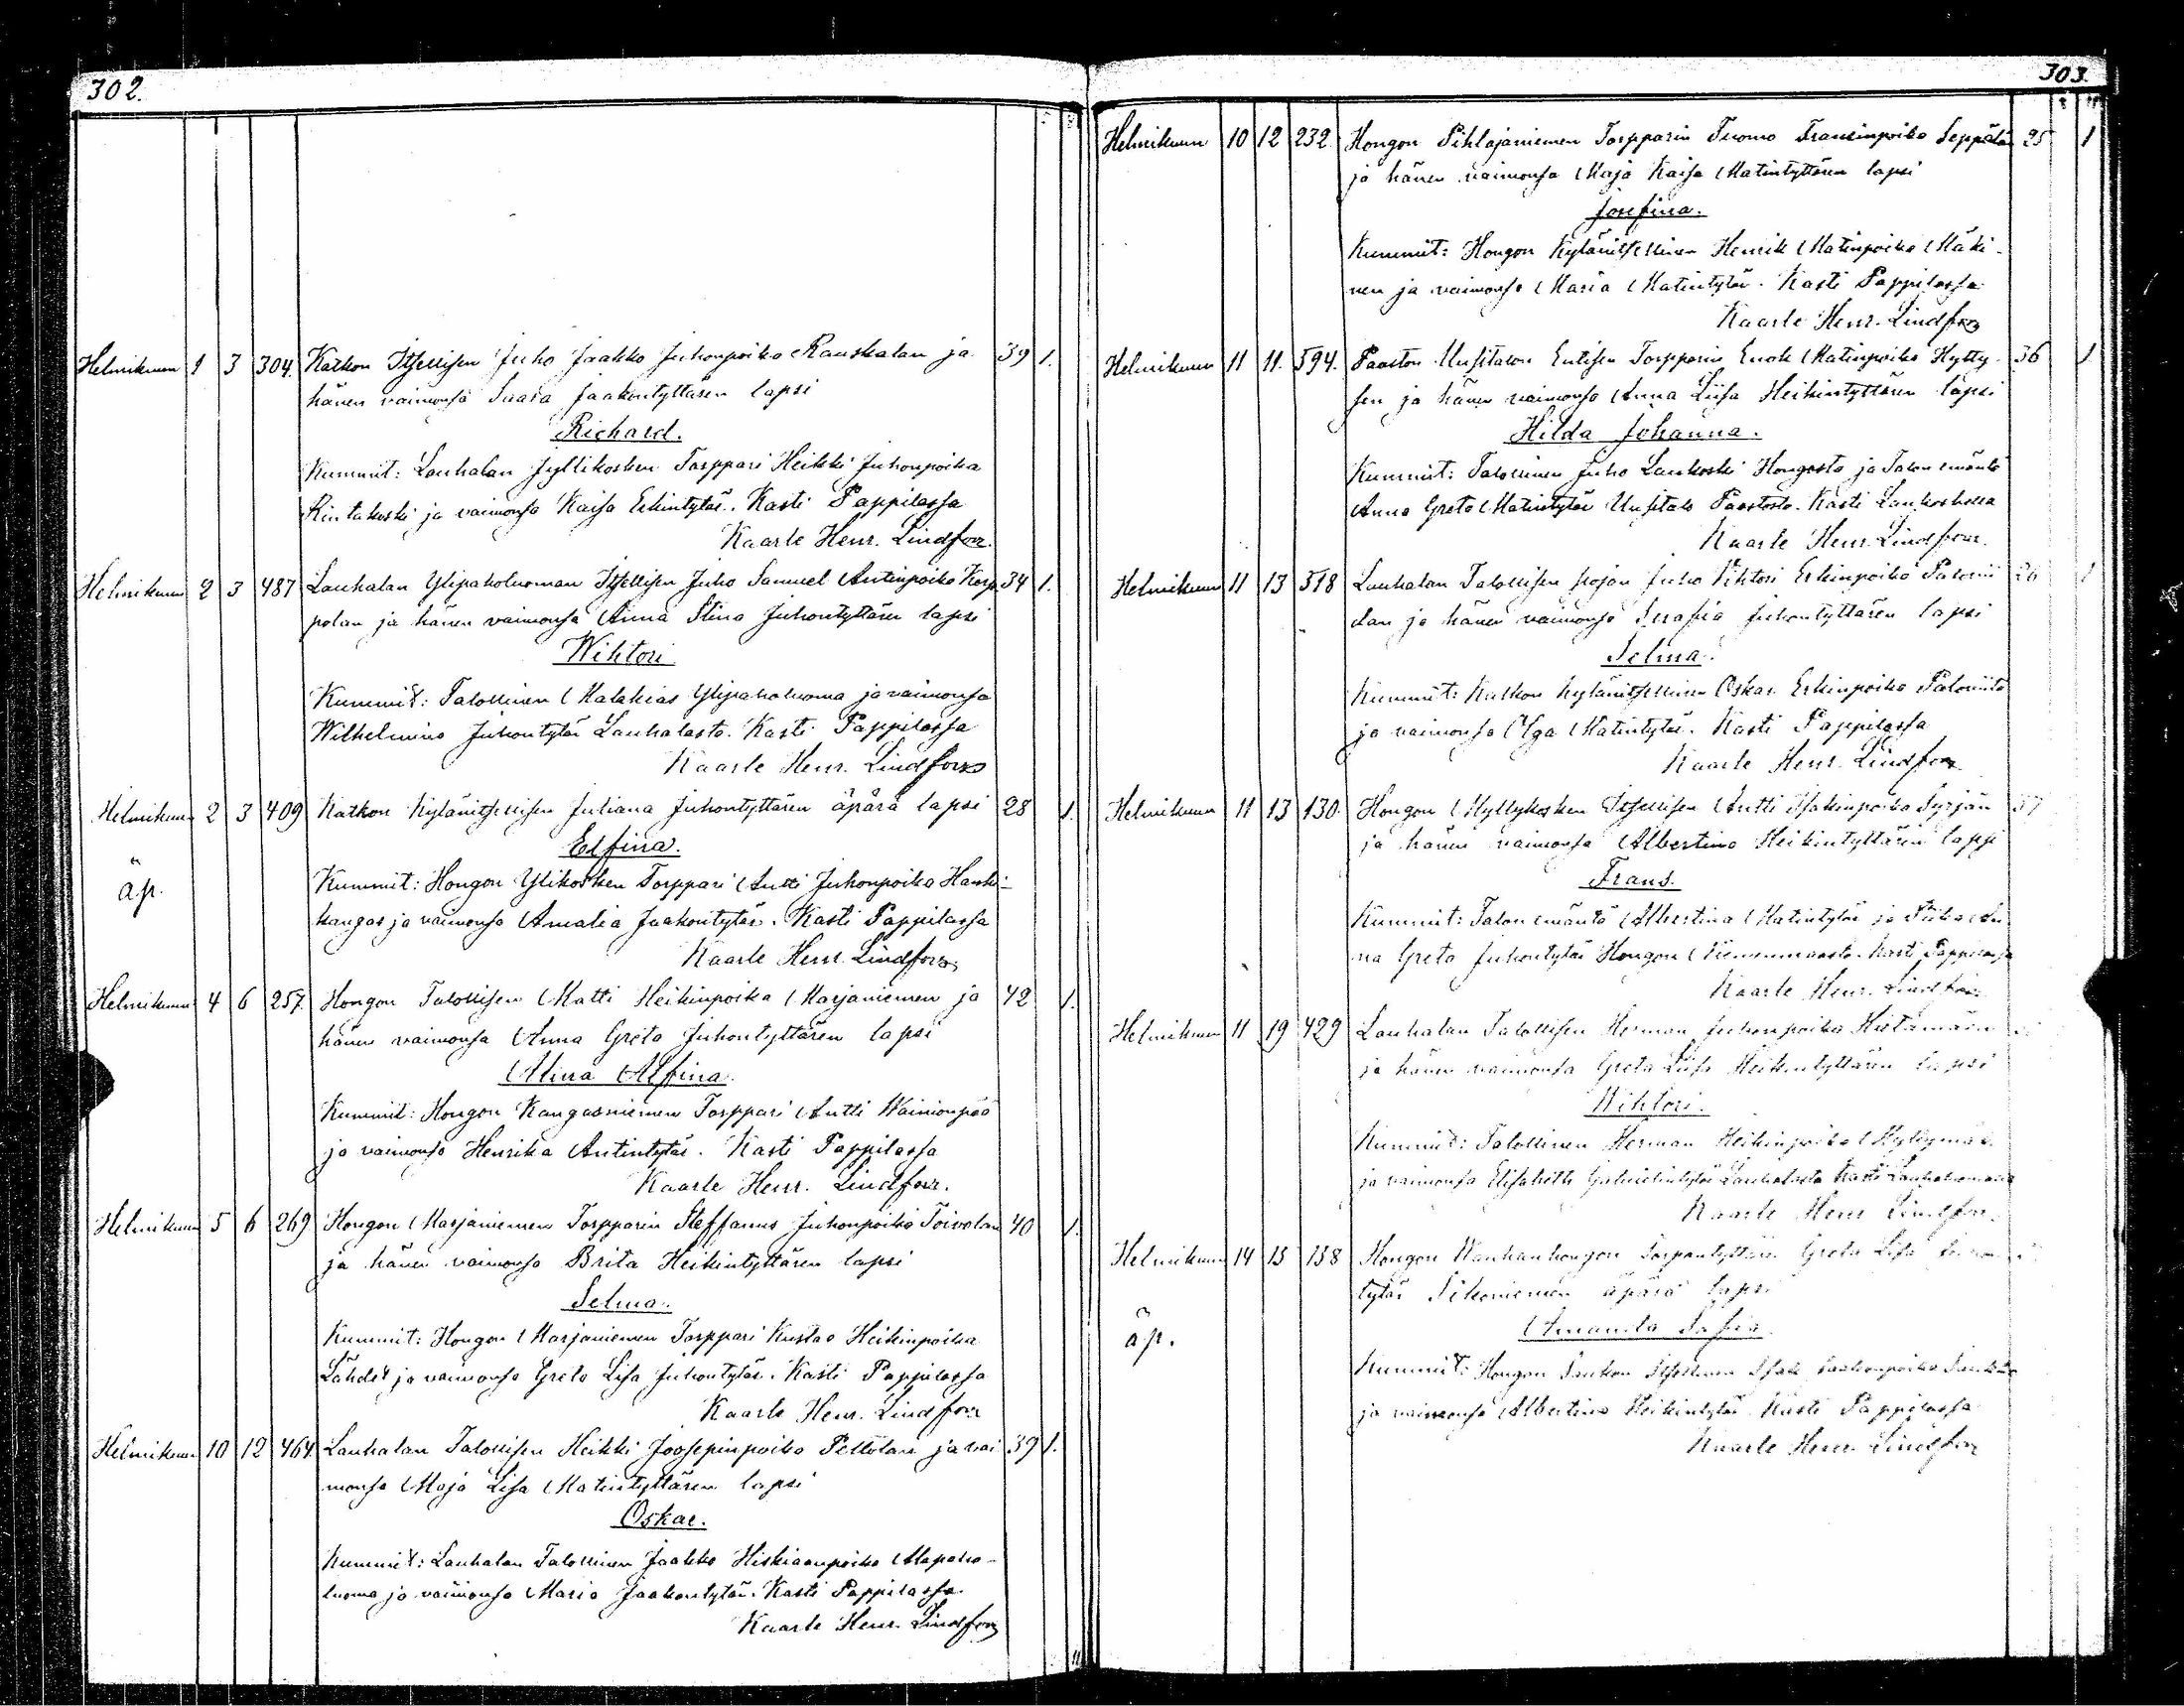 302.
Helmikuun 1 3 304. Katkon Itsellisen Juho Jaakko Juhonpoika Rauskalan ja 39 1.
hänen vaimonsa Saara Jaakontyttären lapsi
Richard.
Kummit: Lauhalan Jyllikosken Torppari Heikki Juhonpoika
Rintakoski ja vaimonsa Kaisa Erkintytär. Kasti Pappilassa
Kaarle Henr. Lindfors.
Helmikuun 2 3 487 Lauhalan Ylipaholuoman Itsellisen Juho Samuel Antinpoika Korp 34 1.
polan ja hänen vaimonsa Anna Stina Juhontyttären lapsi
Wihtori
Kummit: Talollinen Malakias Ylipaholuoma ja vaimonsa
Wilhelmina Juhontytär Lauhalasta. Kasti Pappilassa
Kaarle Henr. Lindfors
Helmikuun 2 3 409 Katkon Kylänitsellisen Juliana Juhontyttären äpärä lapsi 28 1.
Elfina.
äp.
Kummit: Hongon Ylikosken Torppari Antti Juhonpoika Hanhi-
kangas ja vaimonsa Amalia Jaakontytär. Kasti Pappilassa
Kaarle Henr. Lindfors
Helmikuun 4 6 257. Hongon Talollisen Matti Heikinpoika Marjaniemen ja 42 1.
hänen vaimonsa Anna Greta Juhontyttären lapsi
Alina Alfina.
Kummit: Hongon Kangasniemen Torppari Antti Wainionpää
ja vaimonsa Henrika Antintytär. Kasti Pappilassa
Kaarle Henr. Lindfors.
Helmikuun 5 6 269 Hongon Marjaniemen Torpparin Steffanus Juhonpoika Toivolan 40 1.
ja hänen vaimonsa Brita Heikintyttären lapsi
Selma.
Kummit: Hongon Marjaniemen Torppari Kustaa Heikinpoika
Lähdet ja vaimonsa Greta Lisa Juhontytär. Kasti Pappilassa
Kaarle Henr. Lindfors
Helmikuun 10 12 464. Lauhalan Talollisen Heikki Joosepinpoika Peltolan ja vai 39 1.
monsa Maja Lisa Matintyttären lapsi
Oskar.
Kummit: Lauhalan Talollinen Jaakko Hiskiaanpoika Alapaho-
luoma ja vaimonsa Maria Jaakontytär. Kasti Pappilassa.
Kaarle Henr. Lindfors
303.
Helmikuun 10 12 232. Hongon Pihlajaniemen Torpparin Tuomo Fransinpoika Seppälän 25 1
ja hänen vaimonsa Maja Kaisa Matintyttären lapsi
Josefina.
Kummit: Hongon Kylänitsellinen Henrik Matinpoika Mäki-
nen ja vaimonsa Maria Matintytär. Kasti Pappilassa
Kaarle Henr. Lindfors
Helmikuun 11 11. 594. Paaston Uusitalon Entisen Torpparin Enok Matinpoika Hytty- 36 1.
sen ja hänen vaimonsa Anna Liisa Heikintyttären lapsi
Hilda Johanna.
Kummit: Talollinen Juho Laukoski Hongosta ja Talon emäntä
Anna Greta Matintytär Uusitalo Paastosta. Kasti Laukoskella
Kaarle Henr. Lindfors.
Helmikuun 11 13 518 Lauhalan Talollisen pojan Juho Vihtori Erkinpoika Palonii 26 1
dan ja hänen vaimonsa Serafia Juhontyttären lapsi
Selma.
Kummit: Katkon Kylänitsellinen Oskar Erkinpoika Paloniitu
ja vaimonsa Olga Matintytär. Kasti Pappilassa
Kaarle Henr. Lindfors
Helmikuun 11 13 130. Hongon Myllykosken Itsellisen Antti Isakinpoika Syrjän 37
ja hänen vaimonsa Albertina Heikintyttären lapsi
Frans.
Kummit: Talon emäntä Albertina Matintytär ja Piika An
na Greta Juhontytär Hongon Niemenmaasta. Kasti Pappilassa
Kaarle Henr. Lindfors
Helmikuun 11 19 429 Lauhalan Talollisen Herman Juhonpoika Hietamäen
ja hänen vaimonsa Greta Liisa Heikintyttären lapsi
Wihtori.
Kummit: Talollinen Herman Heikinpoika Myllymäki
ja vaimonsa Elisabeth Gabrielintytär Lauhalasta Kasti
Kaarle Henr Lindfors.
Helmikuun 14 15 158 Hongon Wanhanhongon Torparityttären Greta Lisa
tytär äpärä lapsi
Amanda Sofia.
äp.
Kummit: Hongon
ja vaimonsa Albertina Heikintytär Kasti Pappilassa
Kaarle Henr. Lindfors